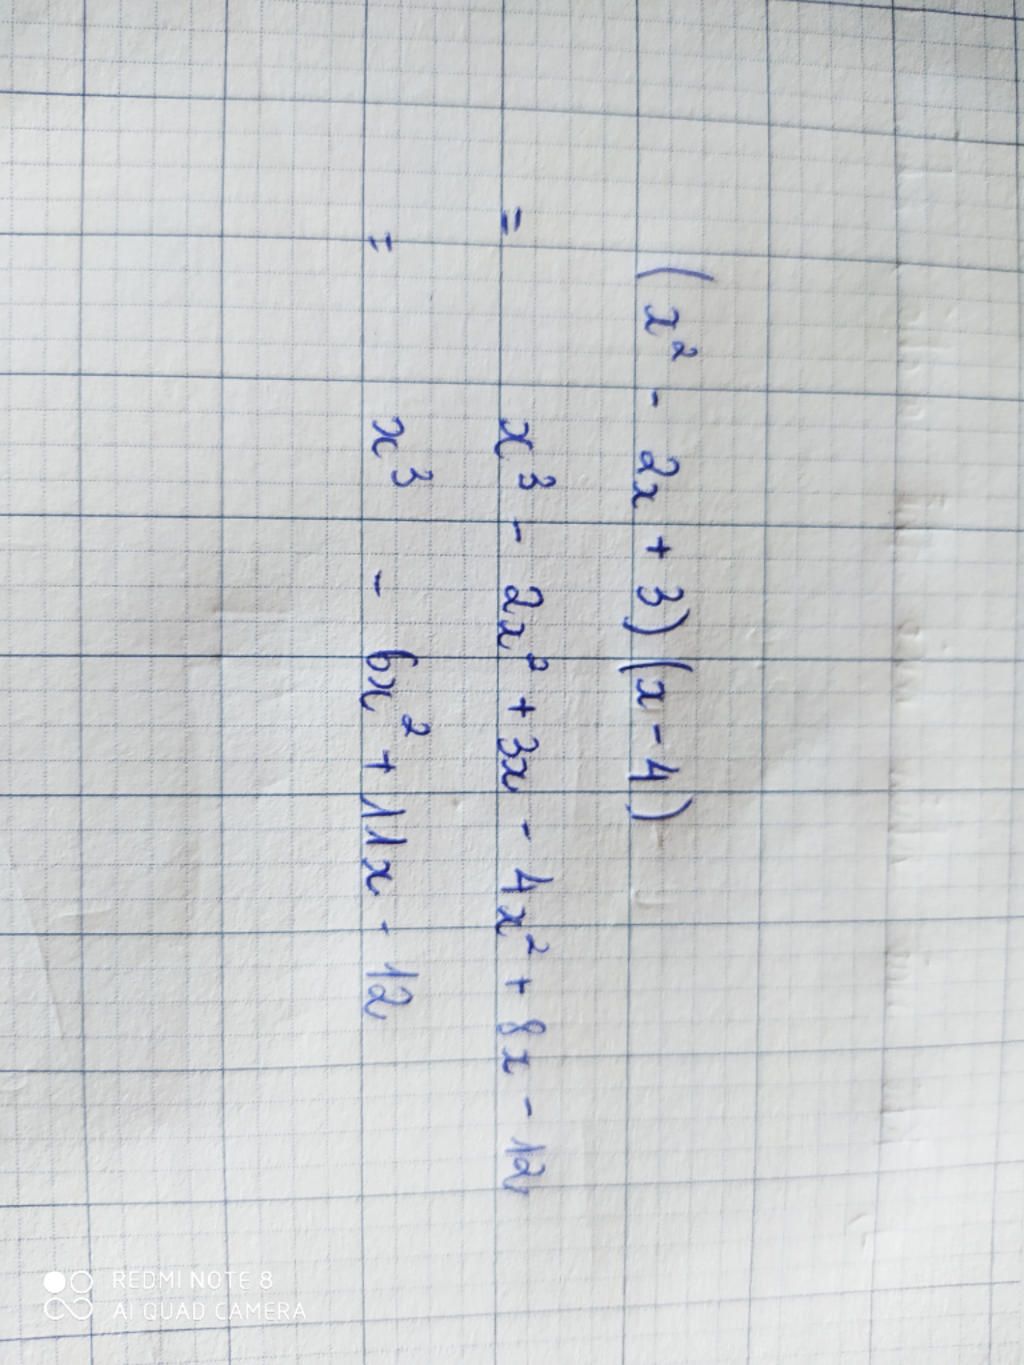 (x² - 2x + 3)(x - 4)
= x³ - 2x² + 3x - 4x² + 8x - 12
= x³ - 6x² + 11x - 12
REDMI NOTE 8
AI QUAD CAMERA